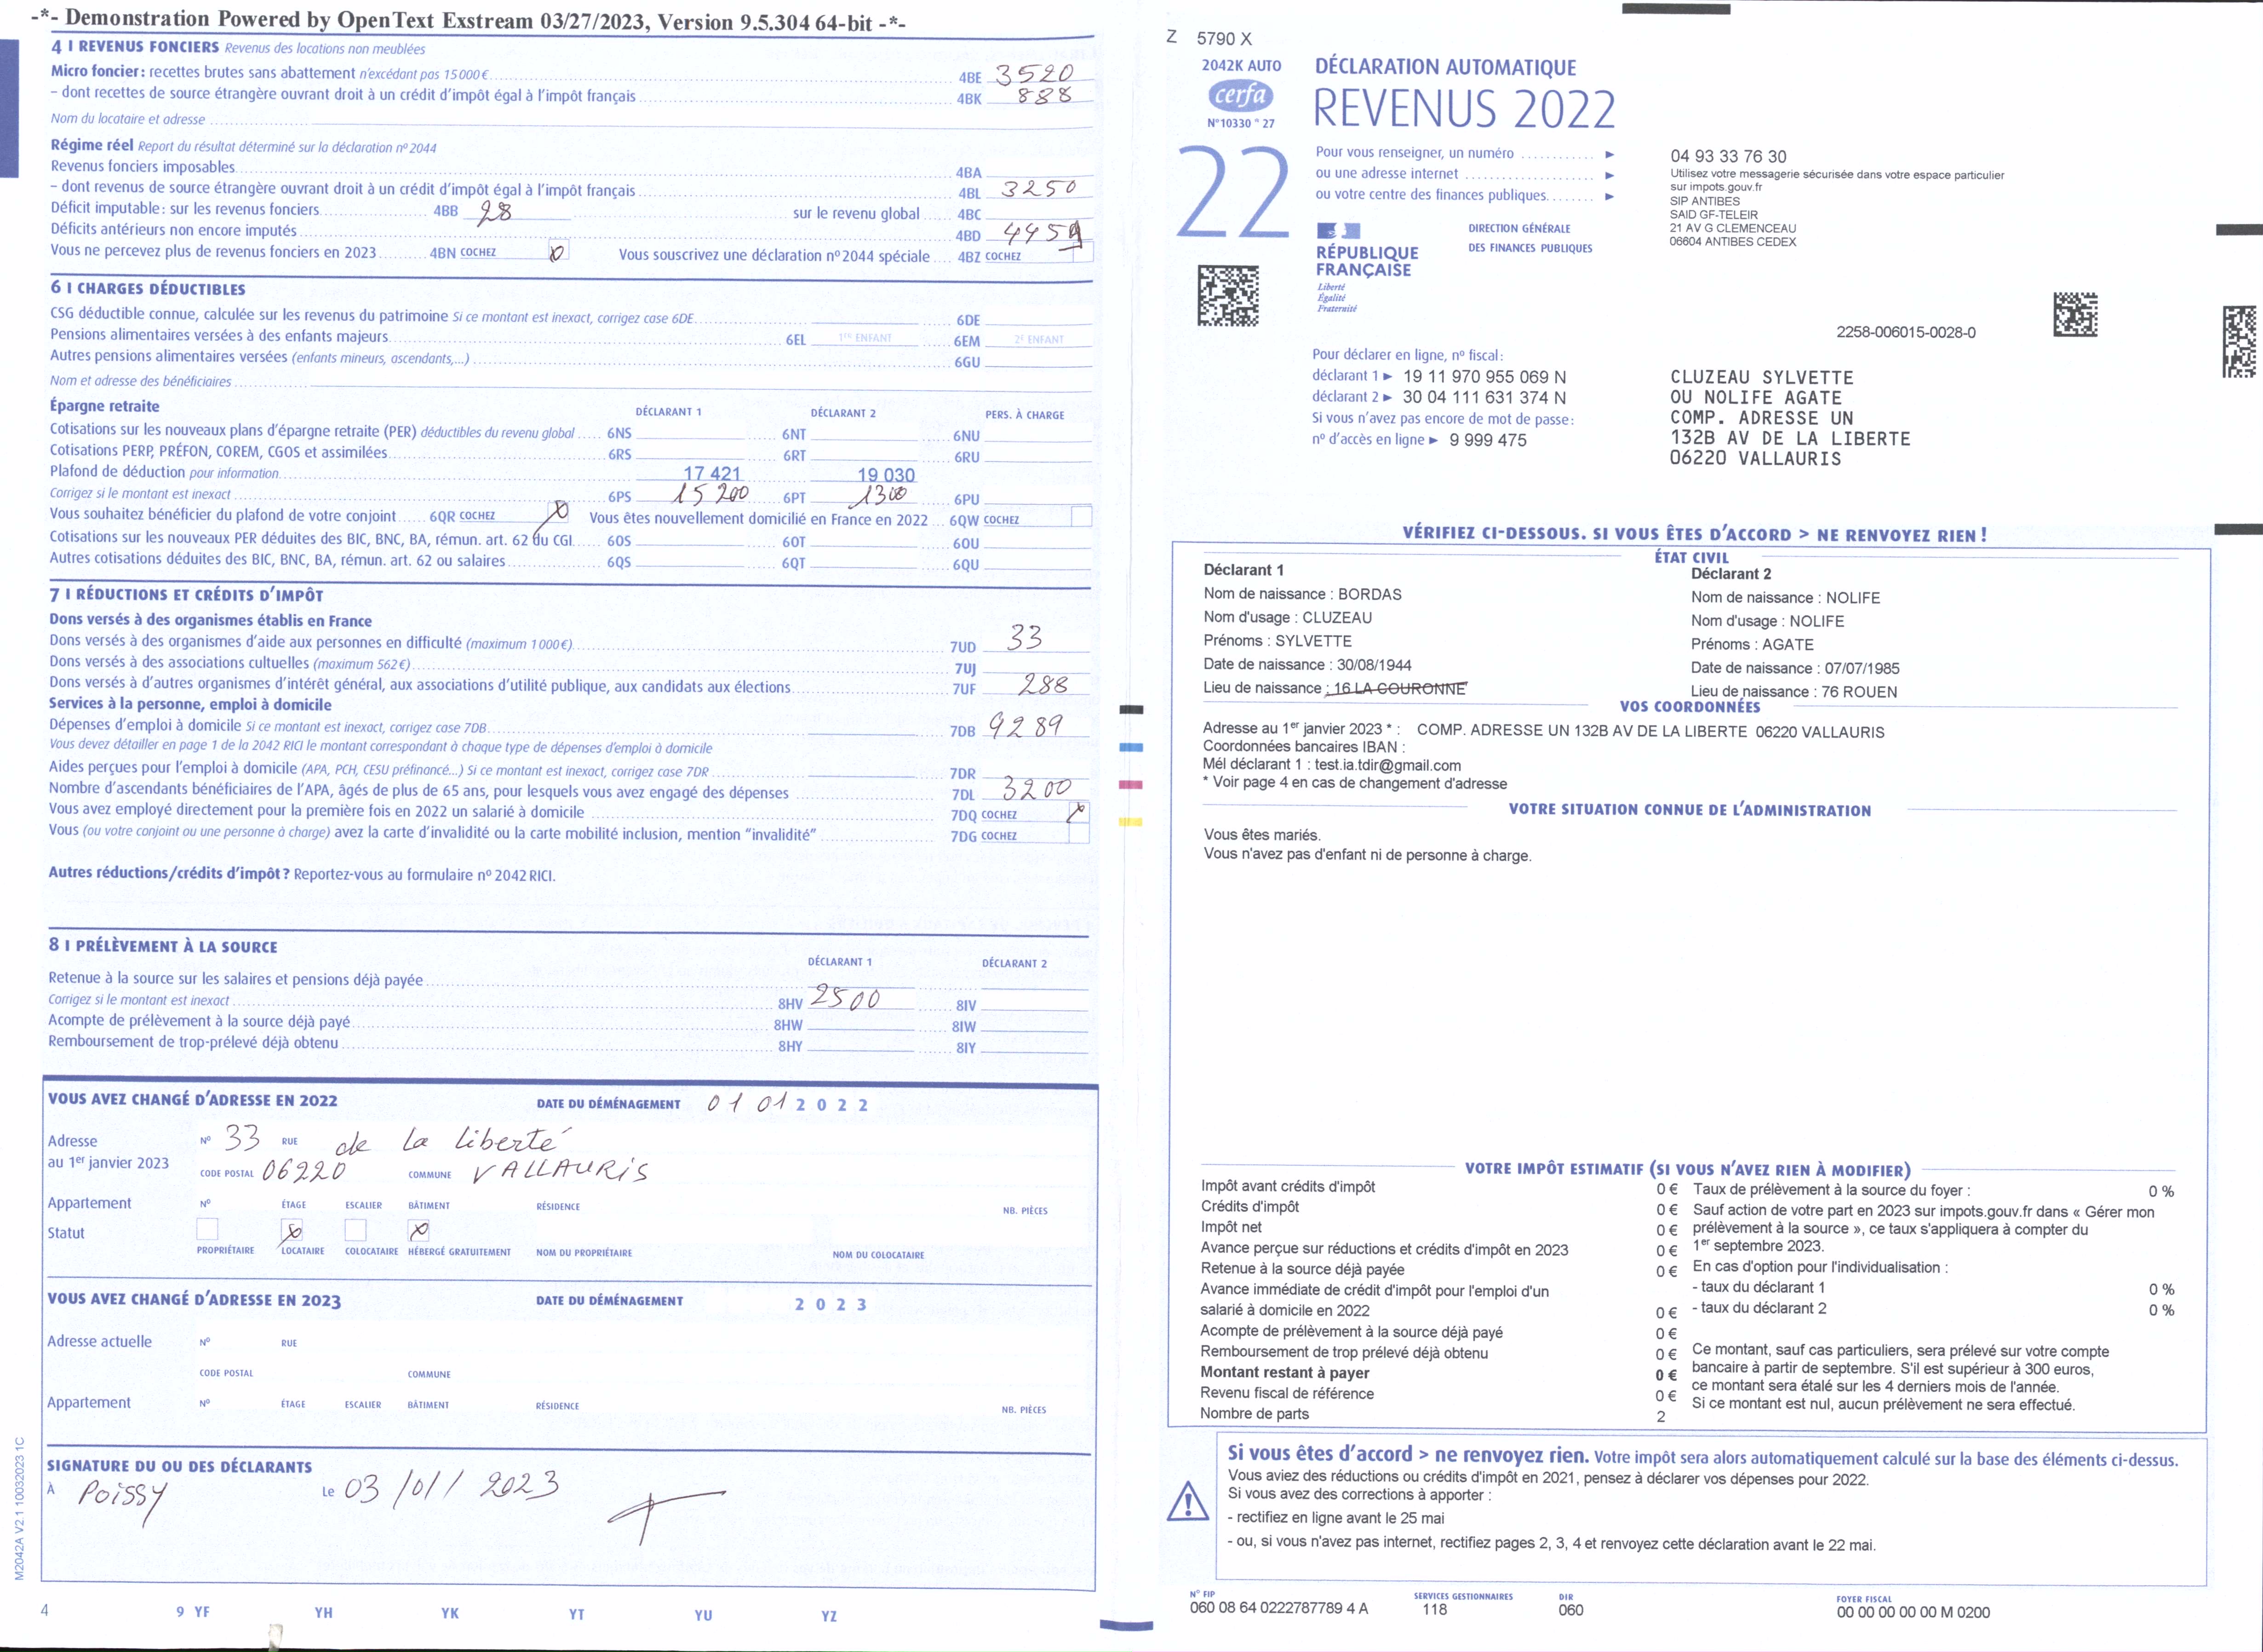 -*- Demonstration Powered by OpenText Exstream 03/27/2023, Version 9.5.304 64-bit -*-
4 I REVENUS FONCIERS Revenus des locations non meublées
Micro foncier : recettes brutes sans abattement n'excédant pas 15000 € 4BE 3520
– dont recettes de source étrangère ouvrant droit à un crédit d'impôt égal à l'impôt français 4BK 888
Nom du locataire et adresse
Régime réel Report du résultat déterminé sur la déclaration nº 2044
Revenus fonciers imposables 4BA
– dont revenus de source étrangère ouvrant droit à un crédit d'impôt égal à l'impôt français 4BL 3250
Déficit imputable : sur les revenus fonciers 4BB 28 sur le revenu global 4BC
Déficits antérieurs non encore imputés 4BD
Vous ne percevez plus de revenus fonciers en 2023 4BN COCHEZ X Vous souscrivez une déclaration nº 2044 spéciale 4BZ COCHEZ
6 I CHARGES DÉDUCTIBLES
CSG déductible connue, calculée sur les revenus du patrimoine Si ce montant est inexact, corrigez case 6DE 6DE
Pensions alimentaires versées à des enfants majeurs 6EL 1ER ENFANT 6EM 2E ENFANT
Autres pensions alimentaires versées (enfants mineurs, ascendants,...) 6GU
Nom et adresse des bénéficiaires
Épargne retraite DÉCLARANT 1 DÉCLARANT 2 PERS. À CHARGE
Cotisations sur les nouveaux plans d'épargne retraite (PER) déductibles du revenu global 6NS 6NT 6NU
Cotisations PERP, PRÉFON, COREM, CGOS et assimilées 6RS 6RT 6RU
Plafond de déduction pour information 17 421 19 030
Corrigez si le montant est inexact 6PS 15 200 6PT 1300 6PU
Vous souhaitez bénéficier du plafond de votre conjoint 6QR COCHEZ X Vous êtes nouvellement domicilié en France en 2022 6QW COCHEZ
Cotisations sur les nouveaux PER déduites des BIC, BNC, BA, rémun. art. 62 du CGI 6OS 6OT 6OU
Autres cotisations déduites des BIC, BNC, BA, rémun. art. 62 ou salaires 6QS 6QT 6QU
7 I RÉDUCTIONS ET CRÉDITS D'IMPÔT
Dons versés à des organismes établis en France
Dons versés à des organismes d'aide aux personnes en difficulté (maximum 1000 €) 7UD 33
Dons versés à des associations cultuelles (maximum 562 €) 7UJ
Dons versés à d'autres organismes d'intérêt général, aux associations d'utilité publique, aux candidats aux élections 7UF 288
Services à la personne, emploi à domicile
Dépenses d'emploi à domicile Si ce montant est inexact, corrigez case 7DB 7DB 9289
Vous devez détailler en page 1 de la 2042 RICI le montant correspondant à chaque type de dépenses d'emploi à domicile
Aides perçues pour l'emploi à domicile (APA, PCH, CESU préfinancé...) Si ce montant est inexact, corrigez case 7DR 7DR
Nombre d'ascendants bénéficiaires de l'APA, âgés de plus de 65 ans, pour lesquels vous avez engagé des dépenses 7DL 3200
Vous avez employé directement pour la première fois en 2022 un salarié à domicile 7DQ COCHEZ X
Vous (ou votre conjoint ou une personne à charge) avez la carte d'invalidité ou la carte mobilité inclusion, mention "invalidité" 7DG COCHEZ
Autres réductions/crédits d'impôt ? Reportez-vous au formulaire nº 2042 RICI.
8 I PRÉLÈVEMENT À LA SOURCE
DÉCLARANT 1 DÉCLARANT 2
Retenue à la source sur les salaires et pensions déjà payée
Corrigez si le montant est inexact 8HV 2500 8IV
Acompte de prélèvement à la source déjà payé 8HW 8IW
Remboursement de trop-prélevé déjà obtenu 8HY 8IY
VOUS AVEZ CHANGÉ D'ADRESSE EN 2022 DATE DU DÉMÉNAGEMENT 01 01 2022
Adresse Nº 33 RUE de la liberté
au 1er janvier 2023 CODE POSTAL 06220 COMMUNE VALLAURIS
Appartement Nº ÉTAGE ESCALIER BÂTIMENT RÉSIDENCE NB. PIÈCES
Statut X X
PROPRIÉTAIRE LOCATAIRE COLOCATAIRE HÉBERGÉ GRATUITEMENT NOM DU PROPRIÉTAIRE NOM DU COLOCATAIRE
VOUS AVEZ CHANGÉ D'ADRESSE EN 2023 DATE DU DÉMÉNAGEMENT 2023
Adresse actuelle Nº RUE
CODE POSTAL COMMUNE
Appartement Nº ÉTAGE ESCALIER BÂTIMENT RÉSIDENCE NB. PIÈCES
SIGNATURE DU OU DES DÉCLARANTS
À Poissy Le 03/01/2023
M2042A V2.1 10032023 1C
4 9 YF YH YK YT YU YZ
Z 5790 X
2042K AUTO
cerfa
N° 10330 * 27
22
DÉCLARATION AUTOMATIQUE
REVENUS 2022
Pour vous renseigner, un numéro 04 93 33 76 30
ou une adresse internet Utilisez votre messagerie sécurisée dans votre espace particulier
sur impots.gouv.fr
ou votre centre des finances publiques SIP ANTIBES
SAID GF-TELEIR
21 AV G CLEMENCEAU
06604 ANTIBES CEDEX
RÉPUBLIQUE
FRANÇAISE
Liberté
Égalité
Fraternité
DIRECTION GÉNÉRALE
DES FINANCES PUBLIQUES
2258-006015-0028-0
Pour déclarer en ligne, nº fiscal :
déclarant 1 ► 19 11 970 955 069 N
déclarant 2 ► 30 04 111 631 374 N
Si vous n'avez pas encore de mot de passe :
nº d'accès en ligne ► 9 999 475
CLUZEAU SYLVETTE
OU NOLIFE AGATE
COMP. ADRESSE UN
132B AV DE LA LIBERTE
06220 VALLAURIS
VÉRIFIEZ CI-DESSOUS. SI VOUS ÊTES D'ACCORD > NE RENVOYEZ RIEN !
ÉTAT CIVIL
Déclarant 1
Nom de naissance : BORDAS
Nom d'usage : CLUZEAU
Prénoms : SYLVETTE
Date de naissance : 30/08/1944
Lieu de naissance : 16 LA COURONNE
Déclarant 2
Nom de naissance : NOLIFE
Nom d'usage : NOLIFE
Prénoms : AGATE
Date de naissance : 07/07/1985
Lieu de naissance : 76 ROUEN
VOS COORDONNÉES
Adresse au 1er janvier 2023 * : COMP. ADRESSE UN 132B AV DE LA LIBERTE 06220 VALLAURIS
Coordonnées bancaires IBAN :
Mél déclarant 1 : test.ia.tdir@gmail.com
* Voir page 4 en cas de changement d'adresse
VOTRE SITUATION CONNUE DE L'ADMINISTRATION
Vous êtes mariés.
Vous n'avez pas d'enfant ni de personne à charge.
VOTRE IMPÔT ESTIMATIF (SI VOUS N'AVEZ RIEN À MODIFIER)
Impôt avant crédits d'impôt 0 €
Crédits d'impôt 0 €
Impôt net 0 €
Avance perçue sur réductions et crédits d'impôt en 2023 0 €
Retenue à la source déjà payée 0 €
Avance immédiate de crédit d'impôt pour l'emploi d'un
salarié à domicile en 2022 0 €
Acompte de prélèvement à la source déjà payé 0 €
Remboursement de trop prélevé déjà obtenu 0 €
Montant restant à payer 0 €
Revenu fiscal de référence 0 €
Nombre de parts 2
Taux de prélèvement à la source du foyer : 0 %
Sauf action de votre part en 2023 sur impots.gouv.fr dans « Gérer mon
prélèvement à la source », ce taux s'appliquera à compter du
1er septembre 2023.
En cas d'option pour l'individualisation :
- taux du déclarant 1 0 %
- taux du déclarant 2 0 %
Ce montant, sauf cas particuliers, sera prélevé sur votre compte
bancaire à partir de septembre. S'il est supérieur à 300 euros,
ce montant sera étalé sur les 4 derniers mois de l'année.
Si ce montant est nul, aucun prélèvement ne sera effectué.
Si vous êtes d'accord > ne renvoyez rien. Votre impôt sera alors automatiquement calculé sur la base des éléments ci-dessus.
Vous aviez des réductions ou crédits d'impôt en 2021, pensez à déclarer vos dépenses pour 2022.
Si vous avez des corrections à apporter :
- rectifiez en ligne avant le 25 mai
- ou, si vous n'avez pas internet, rectifiez pages 2, 3, 4 et renvoyez cette déclaration avant le 22 mai.
N° FIP SERVICES GESTIONNAIRES DIR FOYER FISCAL
060 08 64 0222787789 4 A 118 060 00 00 00 00 00 M 0200